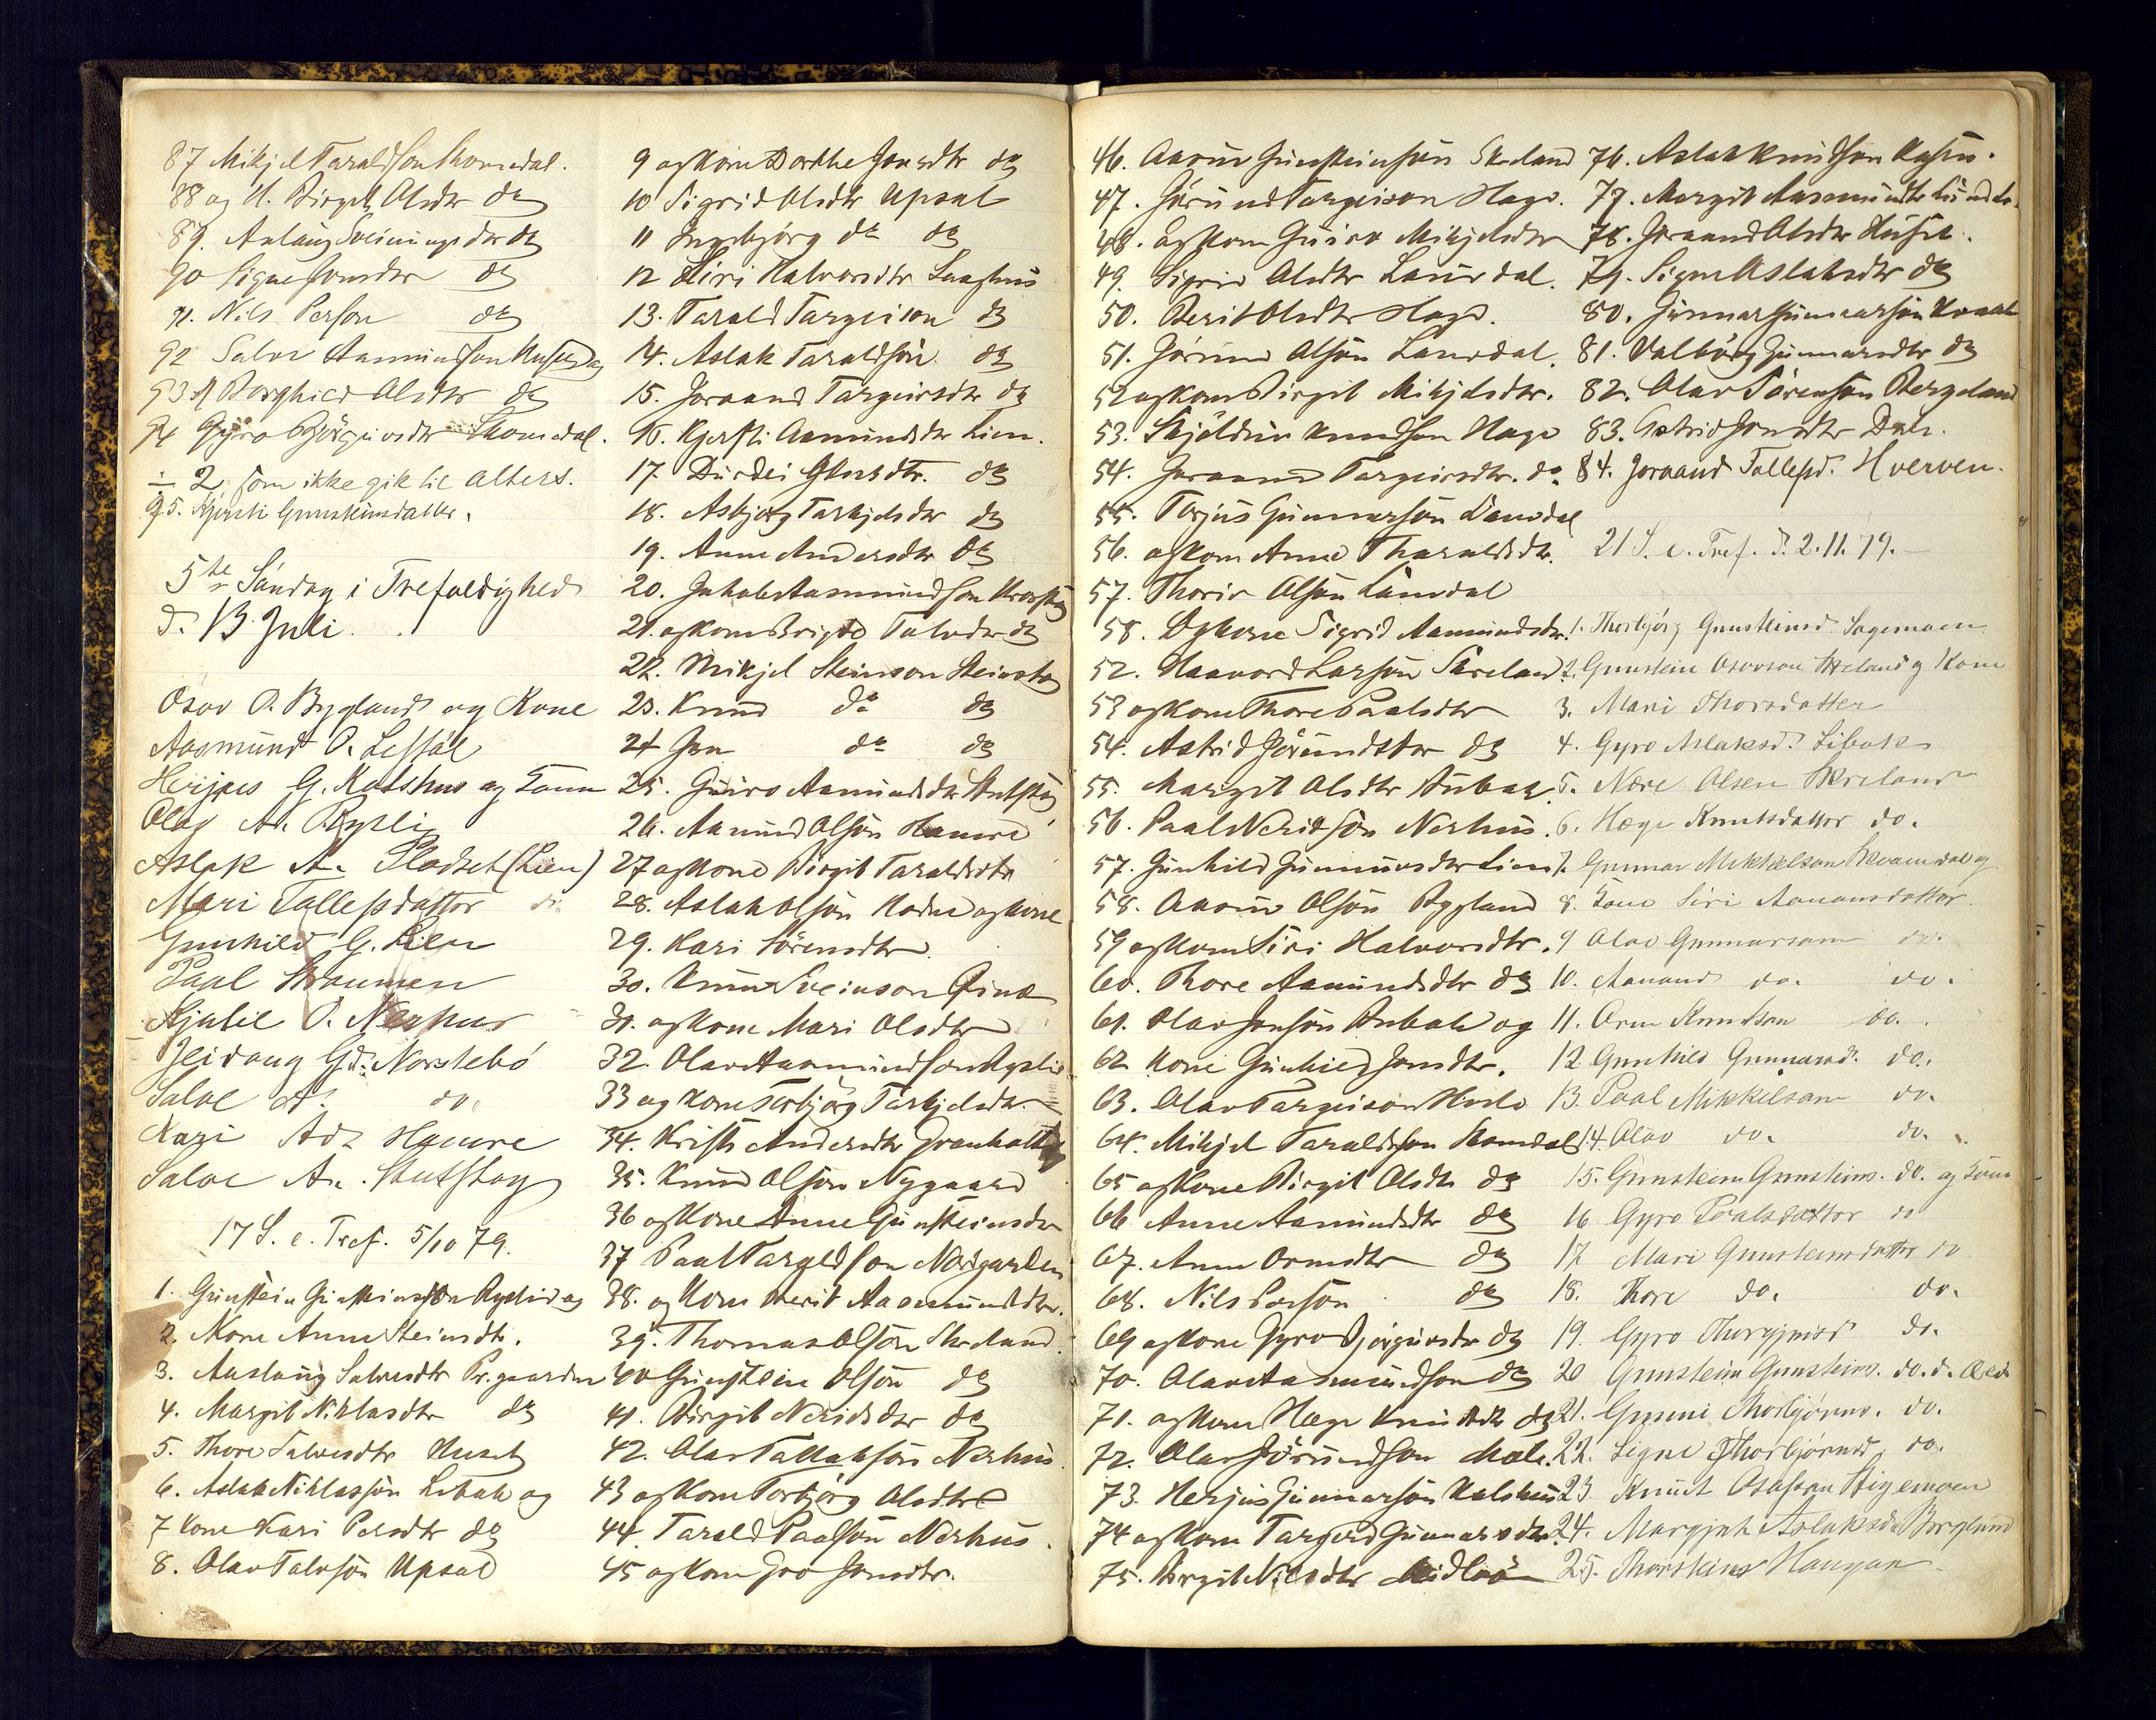 87 Mikjel Taraldson Skomedal.
88 og K. Birgit Olsdtr do
89. Aslaug Sveinungsdtr do
90 Signe Jonsdtr do
91. Nils Person do
92 Salve Aanundson do
93 K Borghild Olsdtr do
94 Gyro Bjørgusdtr Skomedal.
÷ 2 som ikke gik til Alters.
95. Kjersti Gunsteinsdatter.
5te Søndag i Trefoldighed
d. 13 Juli.
Osov O. Bygland og Kone
Aasmund O. Lessal
Herjus G. Kalshus og Kone
Olag A. Rysli
Aslak A. Pladset (Lien)
Mari Tallefsdatter do.
Gunhild G. Lien
Paal Straumen
Kjutil O. Nerhus
Jeidoug Gd. Norstebø
Salve do. do.
Kari Ad. Hamre
Salve A. Stutstøy
17 S. e. Tref. 5/10 79.
1. Gunstein Gunsteinson Ryslid og
2. Kone Anne Steinsdtr.
3. Aaslaug Salvesdtr Pr.gaarden
4. Margit Niklasdtr do
5. Thore Salvesdtr Huset
6. Aslak Niklasson Libak og
7 Kone Kari Persdtr do
8. Olav Talvson Upsal
9 og Kone Dorthe Jonsdtr do
10 Sigrid Olsdtr Upsal
11 Ingebjørg do do
12 Siri Halvorsdtr
13. Tarald Targeison do
14. Aslak Taraldson do
15. Joraand Targeirsdtr do
16. Kjersti Aamundsdtr Lien.
17. Durdei do
18. Asbjørg Tarkjelsdtr do
19. Anne Andersdtr do
20. Jakob Aasmundson
21. og Kone Brigte Talvdtr do
22. Mikjel Steinson
23. Knud do do
24 Jon do do
25. Guiro Aamundsdtr Stutstøy
26. Aamund Olson Hamre
27 og Kone Birgit Taraldsdtr
28. Aslak Olson og Kone
29. Kari Sørensdtr
30. Knut Sveinson
31. og Kone Mari Olsdtr
32. Olav Aasmundson Ryslid
33 og Kone Torbjørg Tarkjelsdtr.
34. Kristi Andersdtr
35. Knud Olson Nygaard
36 og Kone Anne Gunsteinsdtr
37 Paal Taraldson Nordgarden
38. og Kone Berit Aasmundsdtr.
39. Thomas Olson Skreland.
40 Gunstein Olson do
41. Birgit Neridsdtr do
42. Olav Tallakson Nerhus
43 og Kone Torbjørg Olsdtr
44. Tarald Paalson Nerhus.
45 og Kone Gro Jonsdtr.
46. Aanun Gunsteinson Skreland
47. Jørund Targeison Hage.
48. og Kone Guiro Mikjelsdtr
49. Sigrid Olsdtr Lauvdal.
50. Berit Olsdtr Hage.
51. Jørund Olson Lauvdal.
52 og Kone Birgit Mikjelsdtr.
53. Skjøldun Knudson Hage
54. Joraand Targeirsdtr. do.
55. Torjus Gunnarson Lauvdal
56. og Kone Anne Tharaldsdtr.
57. Thorir Olson Lauvdal
58. Og Kone Sigrid Aamundsdtr.
52. Haavord Larson Skreland.
53 og Kone Thore Paalsdtr
54. Astrid Jørundsdtr do
55. Margit Olsdtr Aubak.
56. Paal Neridson Nerhus.
57. Gunhild Gunnarsdtr Lien
58. Aanun Olson Bygland
59 og Kone Siri Halvorsdtr.
60. Thore Aamundsdtr do
61. Olav Jonson Aubak og
62 Kone Gunhild Jonsdtr.
63. Olav Targeison
64. Mikjel Taraldson Skomedal
65 og Kone Birgit Olsdtr do
66. Anne Aamundsdtr do
67. Anne Ormsdtr do
68. Nils Person do
69 og Kone Gyro Bjørgusdtr do
70. Olav Aasmundson do
71. og Kone Hæge Knudsdtr do
72. Olav Jørundson
73. Herjus Gunnarson Kalshus
74 og Kone Targerd Gunnarsdtr.
75. Birgit Nilsdtr
76. Aslak Knudson
77. Margit Aasmundsdtr
78. Joraand Olsdtr Huset.
79. Signe Aslaksdtr do
80. Gunnar Gunnarson
81. Valborg Gunnarsdtr do
82. Olav Sørenson Bergeland
83. Astrid Jonsdtr Dale.
84. Joraand Tallefsd. Hverven.
21 S. e. Tref. d. 2. 11. 79.
1. Thorbjørg Gunsteinsd. Sagemoen
2. Gunstein Osovson Skreland og Kone
3. Mari Thorsdatter
4. Gyro Aslaksd. Libak
5. Nere Olsen Skreland
6. Hæge Knutsdatter do.
7. Gunnar Mikkelson og
8. Kone Siri Aanonsdatter.
9 Olav Gunnarson do.
10. Aanund do. do.
11. Orm Knudson do.
12. Gunhild Gunnarsd. do.
13. Paal Mikkelson do.
14. Olav do. do.
15. Gunstein Gunsteins. do. og Kone
16 Gyro Paalsdatter do
17. Mari Gunsteinsdatter do
18. Thore do. do.
19. Gyro Thorgjusd. do.
20 Gunstein Gunsteins. do. d. Æld.
21. Gunni Thorbjørns. do.
22. Signe Thorbjørnsd. do.
23 Knut Osufson Stigemoen
24. Margjit Aslaksd.
25. Thorstein Haugan